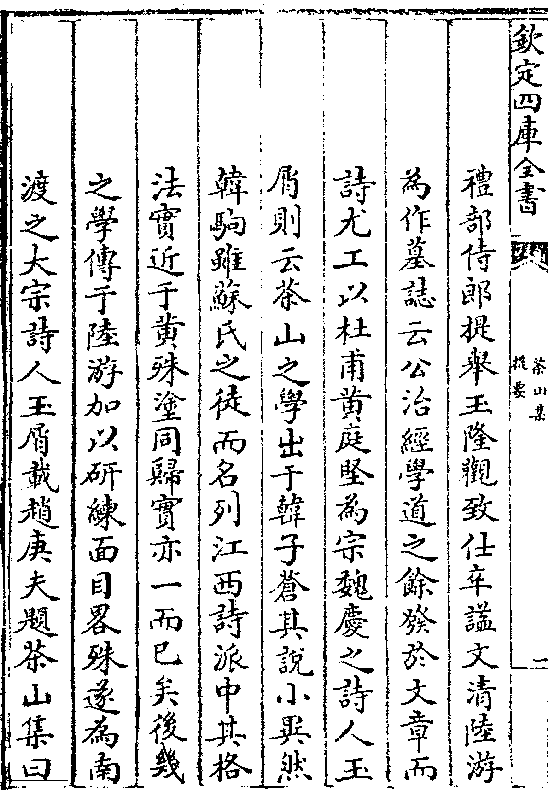 欽定四庫全書
茶山集
提要
一
禮部侍郎提舉玉隆觀致仕卒諡文清陸游
為作墓誌云公治經學道之餘發於文章而
詩尤工以杜甫黄庭堅為宗魏慶之詩人玉
屑則云茶山之學出于韓子蒼其說小異然
韓駒雖蘇氏之徒而名列江西詩派中其格
法實近于黄殊塗同歸實亦一而已矣後幾
之學傳于陸游加以研練面目畧殊遂為南
渡之大宗詩人玉屑載趙庚夫題茶山集曰